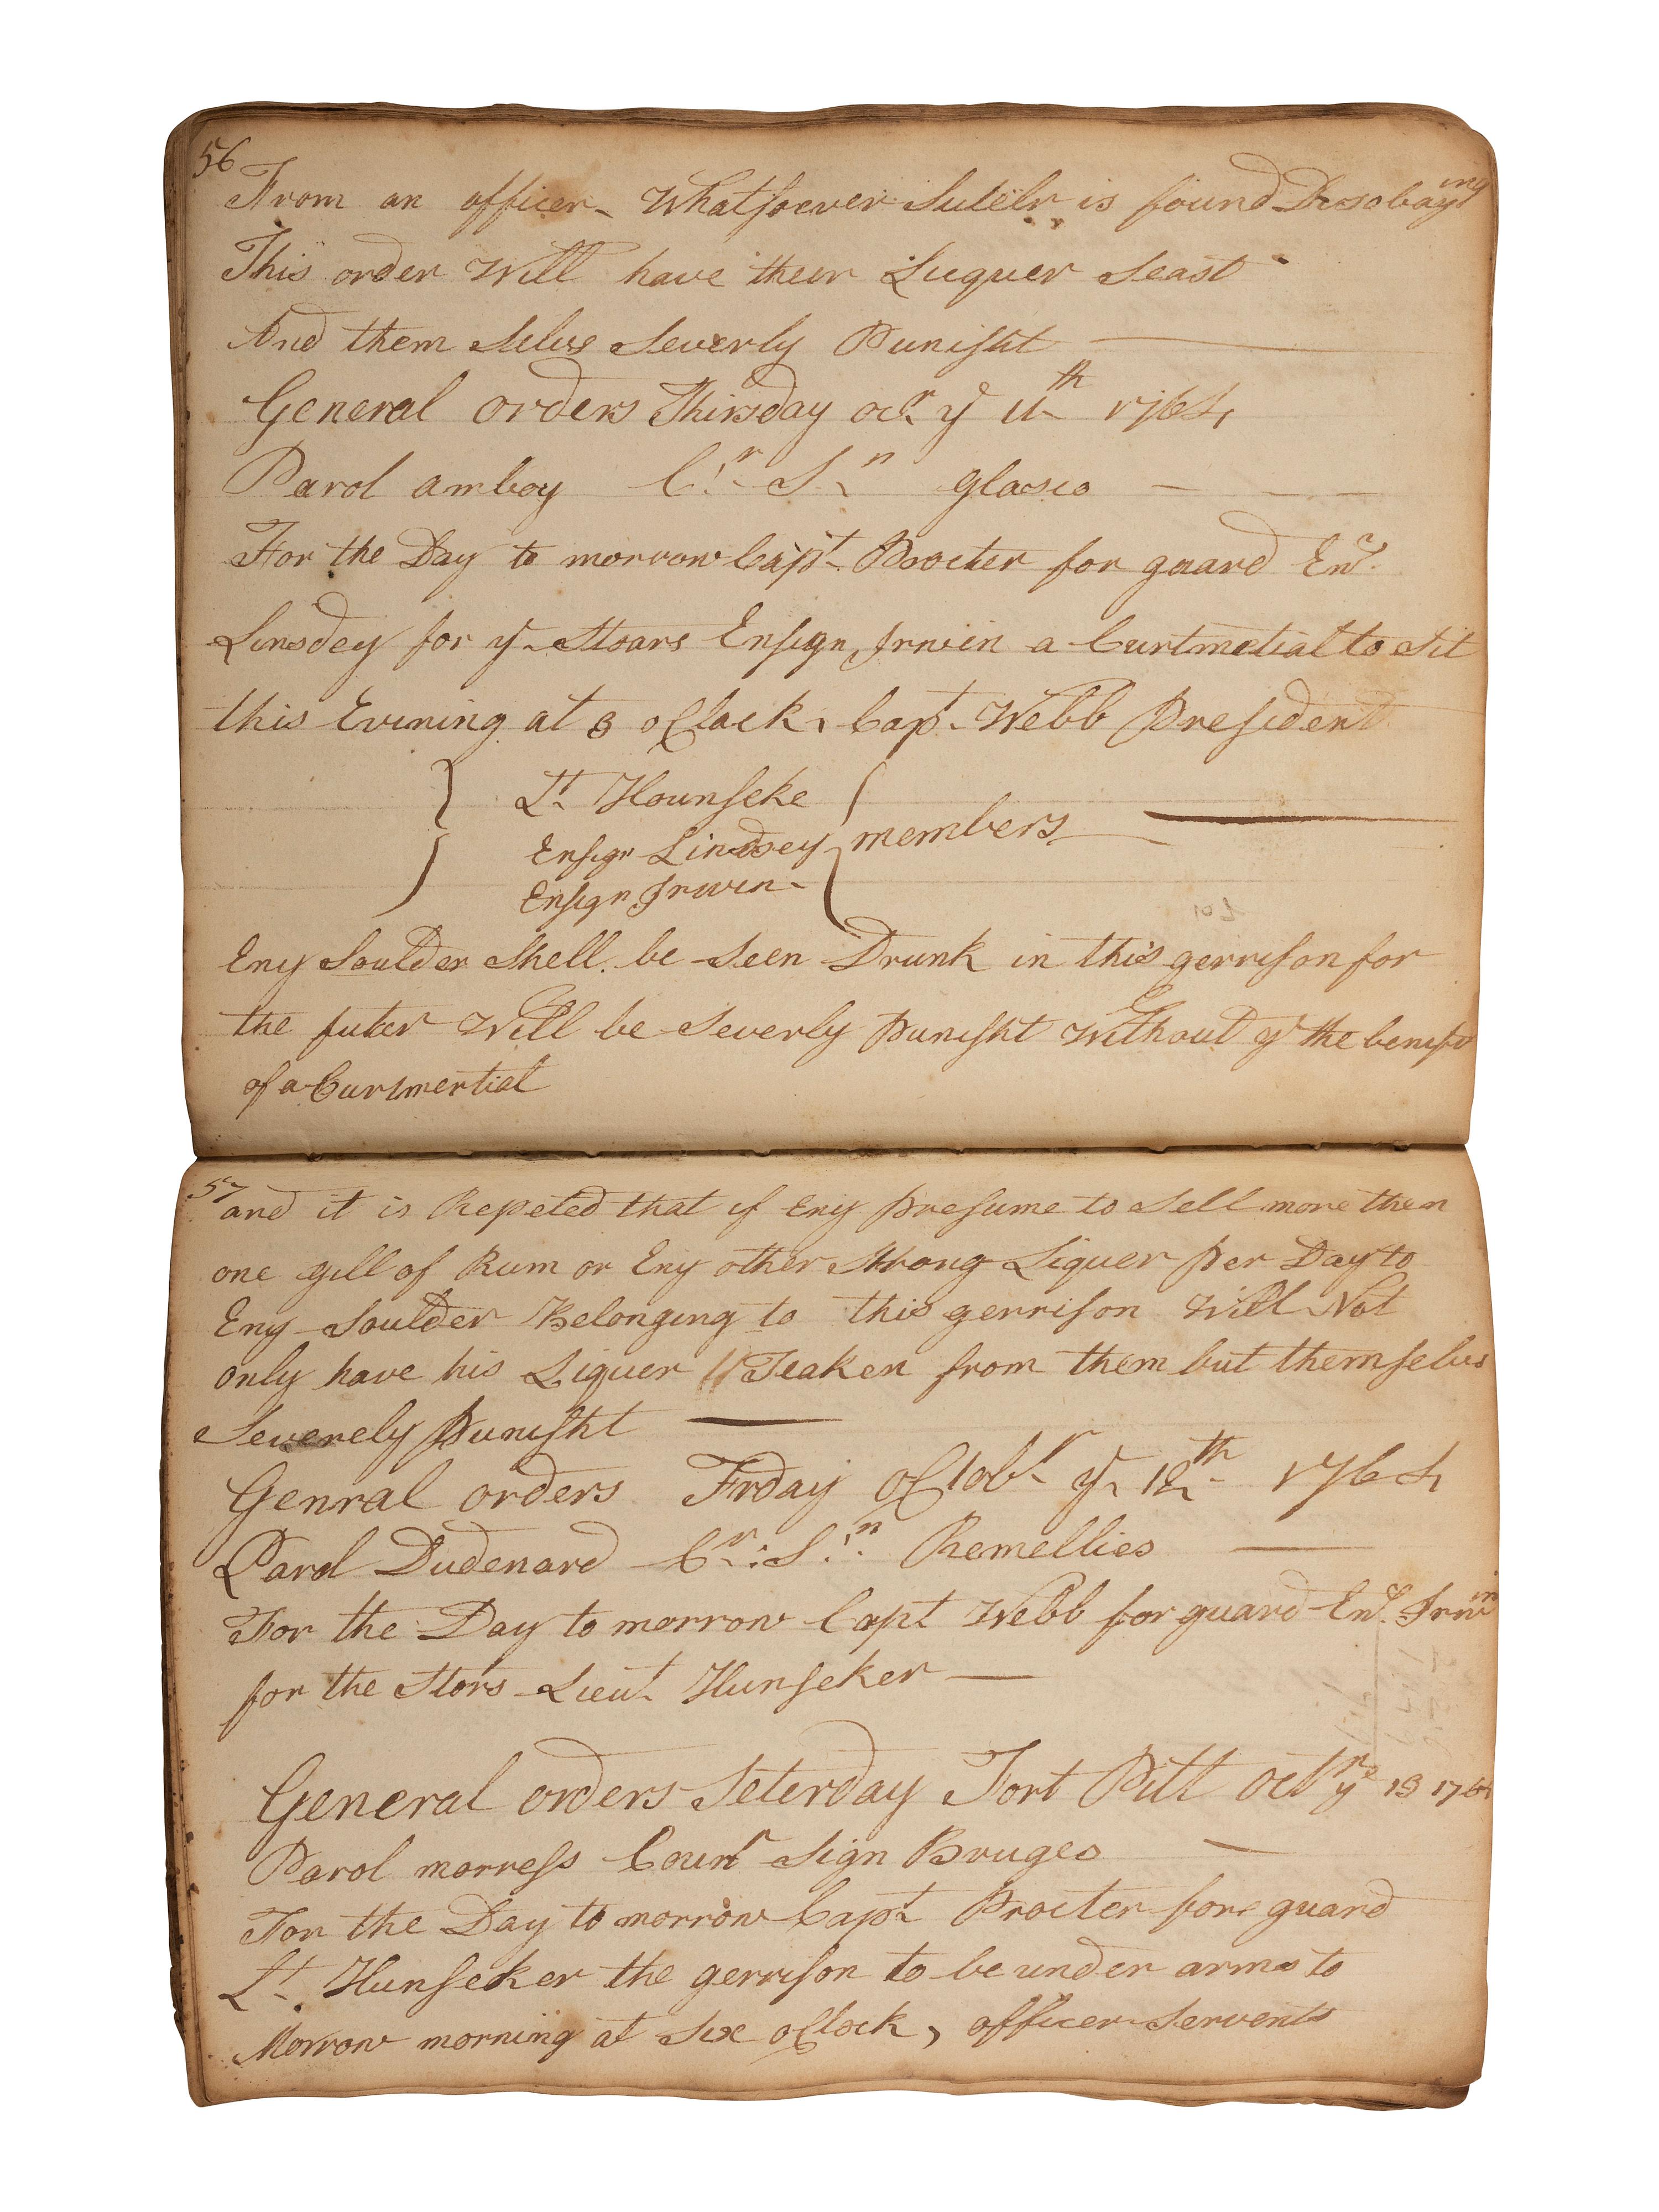 56
From an officer - Whatsoever Suteler is found Disobaying
This order Will have their Luquer Seast
And them Selve Severly Punisht
General orders Thirsday ocr ye 11th 1764
Parol amboy Cr Sn glasco
For the Day to morrow Capt Procter for guard Ens.
Linsdey for ye Stoars Ensign Irwin a Curtmetial to Sit
this Evining at 8 oClock Capt Webb President
Lt Hounseke
Ensign Lindsey members
Ensign Irwin
Eny Soulder Shell be Seen Drunk in this gerrison for
the futer Will be Severly punisht Without ye the benifit
of a Curtmertial
57
and it is Repeted that if Eny presume to Sell more then
one gill of Rum or Eny other Strong Liquer per Day to
Eny Soulder Belonging to this gerrison Will Not
only have his Liquer Teaken from them but themselves
Severely punisht
Genral orders Frday octobr ye 12th 1764
Parol Dudenard Cr: Sn: Remellies
For the Day to morrow Capt Webb for guard Ens. Irwin
for the Stors Lieut Hunseker
General orders Seterday Fort Pitt Octr ye 13 1764
Parol morress Counr Sign Bruges
For the Day to morrow Capt Procter fore guard
Lt Hunseker the gerrison to be under arms to
Morrow morning at Six oClock, officer Servents